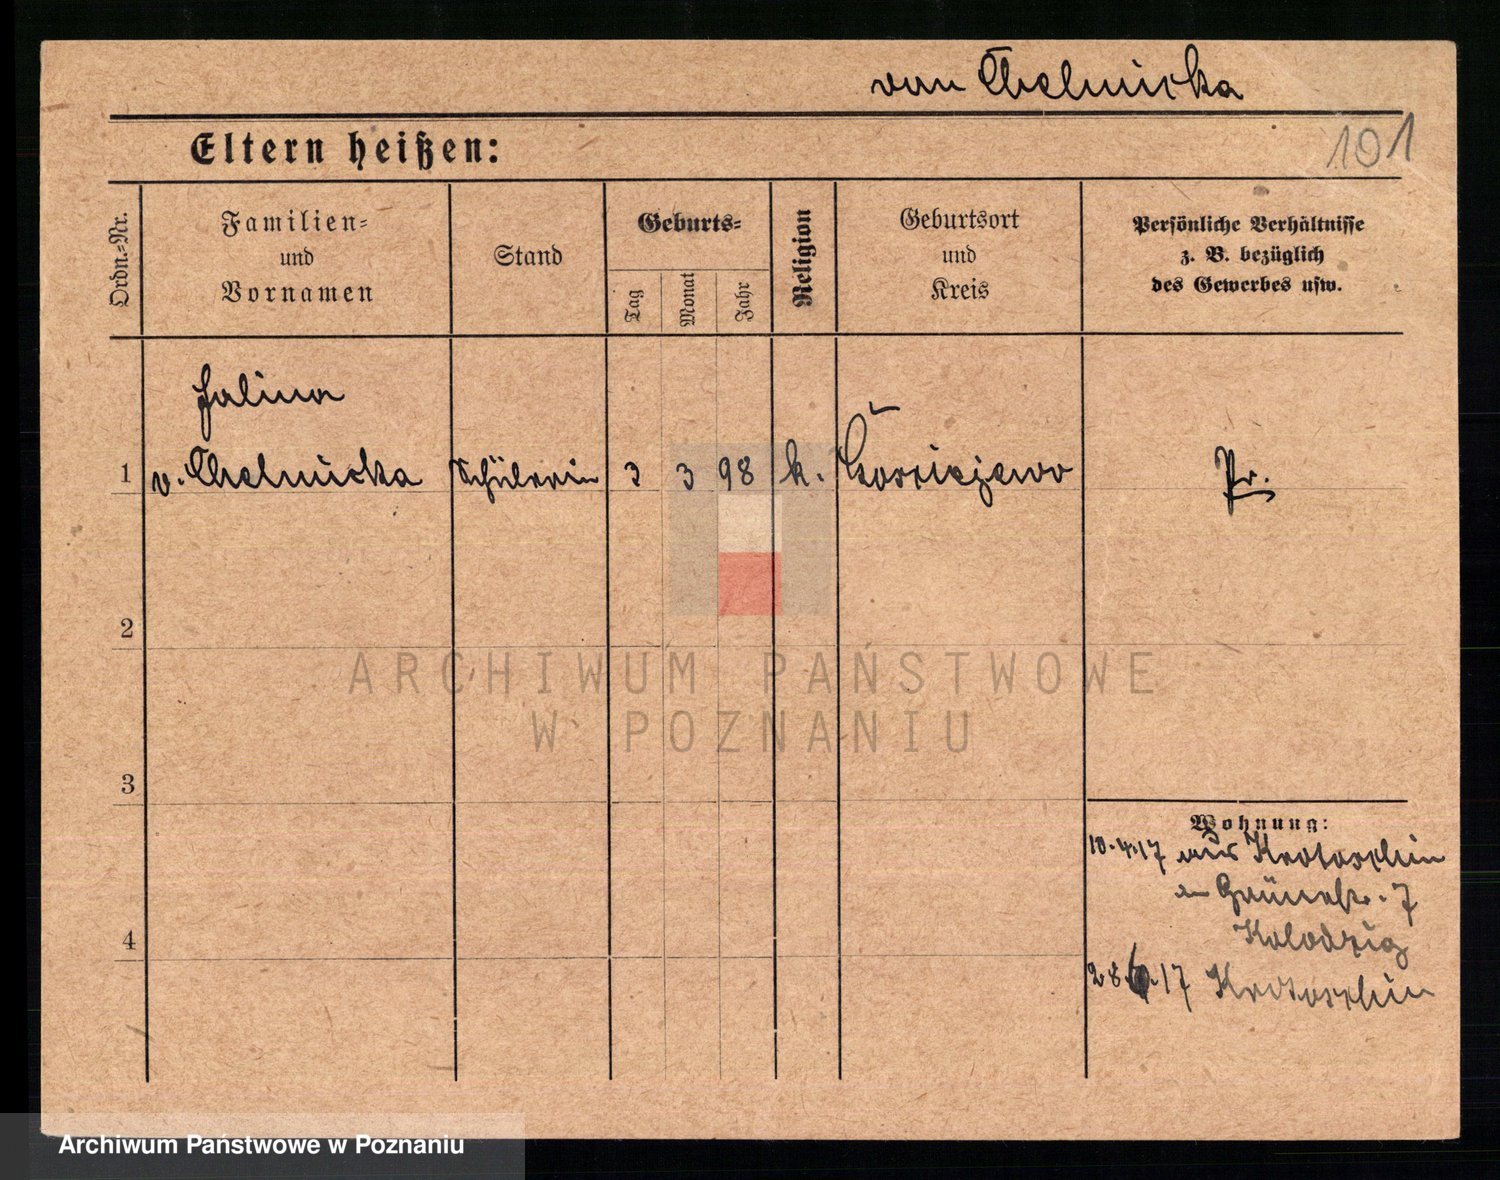 von Chelmicka
Eltern heißen:
101
Ordn.-Nr.
Familien-
und
Vornamen
Stand
Geburts-
Tag
Monat
Jahr
Religion
Geburtsort
und
Kreis
Persönliche Verhältnisse
z. B. bezüglich
des Gewerbes usw.
Halina
1 v. Chelmicka Schülerin 3 3 98 k. Pr.
2
ARCHIWUM PAŃSTWOWE
W POZNANIU
3
Wohnung:
10.4.17 aus Krotoschin
Grünestr. 7
4
Kolodzig
28. 17 Krotoschin
Archiwum Państwowe w Poznaniu